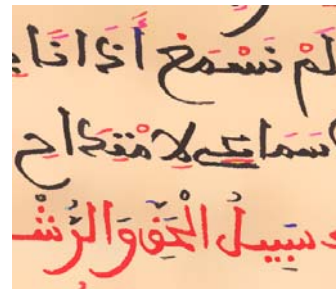 لَمْ نَسْمَعْ أَذَانَا
سَمَاعِي لِامْتِدَاحِ
سَبِيلُ الْحَقِّ وَالرُّشْـ